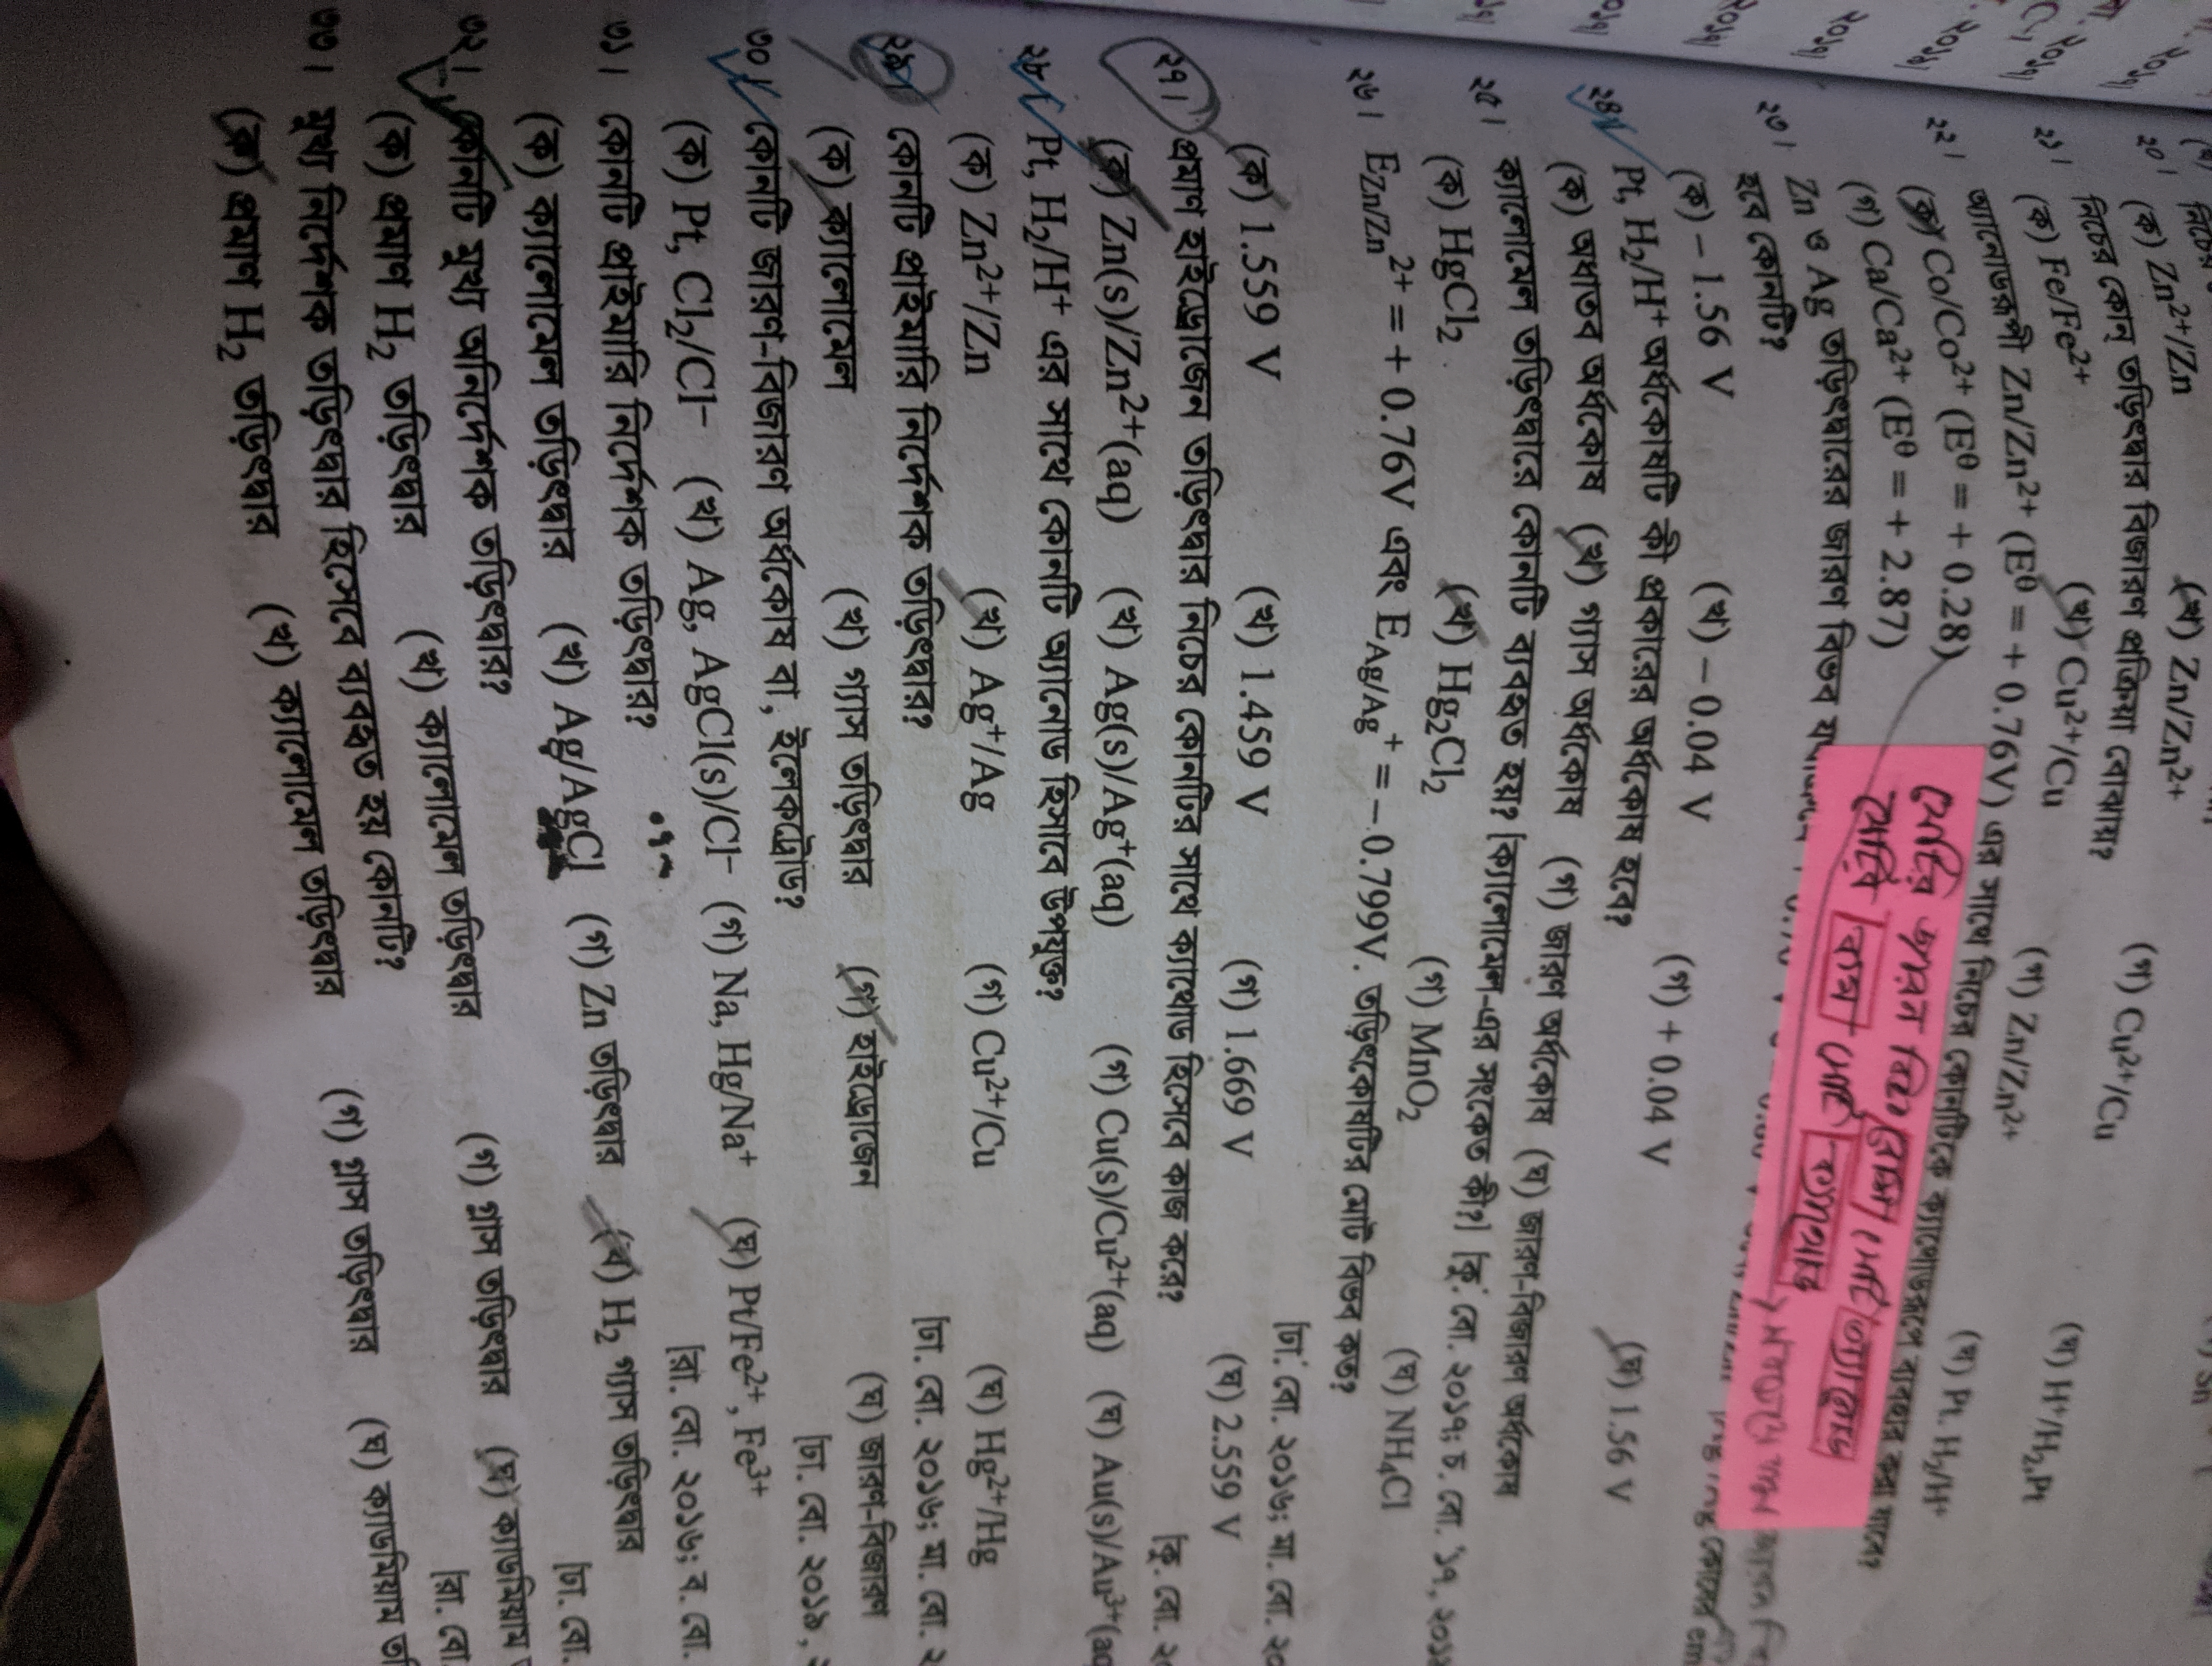 ২০। (ক) Zn²⁺/Zn (খ) Zn/Zn²⁺ (গ) Cu²⁺/Cu
নিচের কোন্ তড়িৎদ্বার বিজারণ প্রক্রিয়া বোঝায়?
২১। (ক) Fe/Fe²⁺ (খ) Cu²⁺/Cu (গ) Zn/Zn²⁺ (ঘ) H⁺/H₂,Pt
অ্যানোডরূপী Zn/Zn²⁺ (E⁰ = + 0.76V) এর সাথে নিচের কোনটিকে ক্যাথোডরূপে ব্যবহার করা যাবে?
২২। (ক) Co/Co²⁺ (E⁰ = + 0.28) (ঘ) Pt, H₂/H⁺
(গ) Ca/Ca²⁺ (E⁰ = + 2.87)
যেটির জারন বিভব বেশি সেটি অ্যানোড
যেটির কম সেটি ক্যাথোড
২৩। Zn ও Ag তড়িৎদ্বারের জারণ বিভব
হবে কোনটি?
(ক) – 1.56 V (খ) – 0.04 V (গ) + 0.04 V (ঘ) 1.56 V
২৪। Pt, H₂/H⁺ অর্ধকোষটি কী প্রকারের অর্ধকোষ হবে?
(ক) অধাতব অর্ধকোষ (খ) গ্যাস অর্ধকোষ (গ) জারণ অর্ধকোষ (ঘ) জারণ-বিজারণ অর্ধকোষ
২৫। ক্যালোমেল তড়িৎদ্বারে কোনটি ব্যবহৃত হয়? [ক্যালোমেল-এর সংকেত কী?] [কু. বো. ২০১৭; চ. বো. '১৭, ২০১৯
(ক) HgCl₂ (খ) Hg₂Cl₂ (গ) MnO₂ (ঘ) NH₄Cl
২৬। E_Zn/Zn²⁺ = + 0.76V এবং E_Ag/Ag⁺ = – 0.799V. তড়িৎকোষটির মোট বিভব কত?
[ঢা. বো. ২০১৬; মা. বো. ২০
(ক) 1.559 V (খ) 1.459 V (গ) 1.669 V (ঘ) 2.559 V
২৭। প্রমাণ হাইড্রোজেন তড়িৎদ্বার নিচের কোনটির সাথে ক্যাথোড হিসেবে কাজ করে? [কু. বো. ২০
(ক) Zn(s)/Zn²⁺(aq) (খ) Ag(s)/Ag⁺(aq) (গ) Cu(s)/Cu²⁺(aq) (ঘ) Au(s)/Au³⁺(aq
২৮। Pt, H₂/H⁺ এর সাথে কোনটি অ্যানোড হিসাবে উপযুক্ত?
(ক) Zn²⁺/Zn (খ) Ag⁺/Ag (গ) Cu²⁺/Cu (ঘ) Hg²⁺/Hg
২৯। কোনটি প্রাইমারি নির্দেশক তড়িৎদ্বার? [ঢা. বো. ২০১৬; মা. বো. ২
(ক) ক্যালোমেল (খ) গ্যাস তড়িৎদ্বার (গ) হাইড্রোজেন (ঘ) জারণ-বিজারণ
৩০। কোনটি জারণ-বিজারণ অর্ধকোষ বা, ইলেকট্রোড? [ঢা. বো. ২০১৯, ২
(ক) Pt, Cl₂/Cl⁻ (খ) Ag, AgCl(s)/Cl⁻ (গ) Na, Hg/Na⁺ (ঘ) Pt/Fe²⁺, Fe³⁺
৩১। কোনটি প্রাইমারি নির্দেশক তড়িৎদ্বার? [রা. বো. ২০১৬; ব. বো.
(ক) ক্যালোমেল তড়িৎদ্বার (খ) Ag/AgCl (গ) Zn তড়িৎদ্বার (ঘ) H₂ গ্যাস তড়িৎদ্বার
৩২। কোনটি মুখ্য অনির্দেশক তড়িৎদ্বার? [ঢা. বো.
(ক) প্রমাণ H₂ তড়িৎদ্বার (খ) ক্যালোমেল তড়িৎদ্বার (গ) গ্লাস তড়িৎদ্বার (ঘ) ক্যাডমিয়াম
৩৩। মুখ্য নির্দেশক তড়িৎদ্বার হিসেবে ব্যবহৃত হয় কোনটি? [রা. বো.
(ক) প্রমাণ H₂ তড়িৎদ্বার (খ) ক্যালোমেল তড়িৎদ্বার (গ) গ্লাস তড়িৎদ্বার (ঘ) ক্যাডমিয়াম